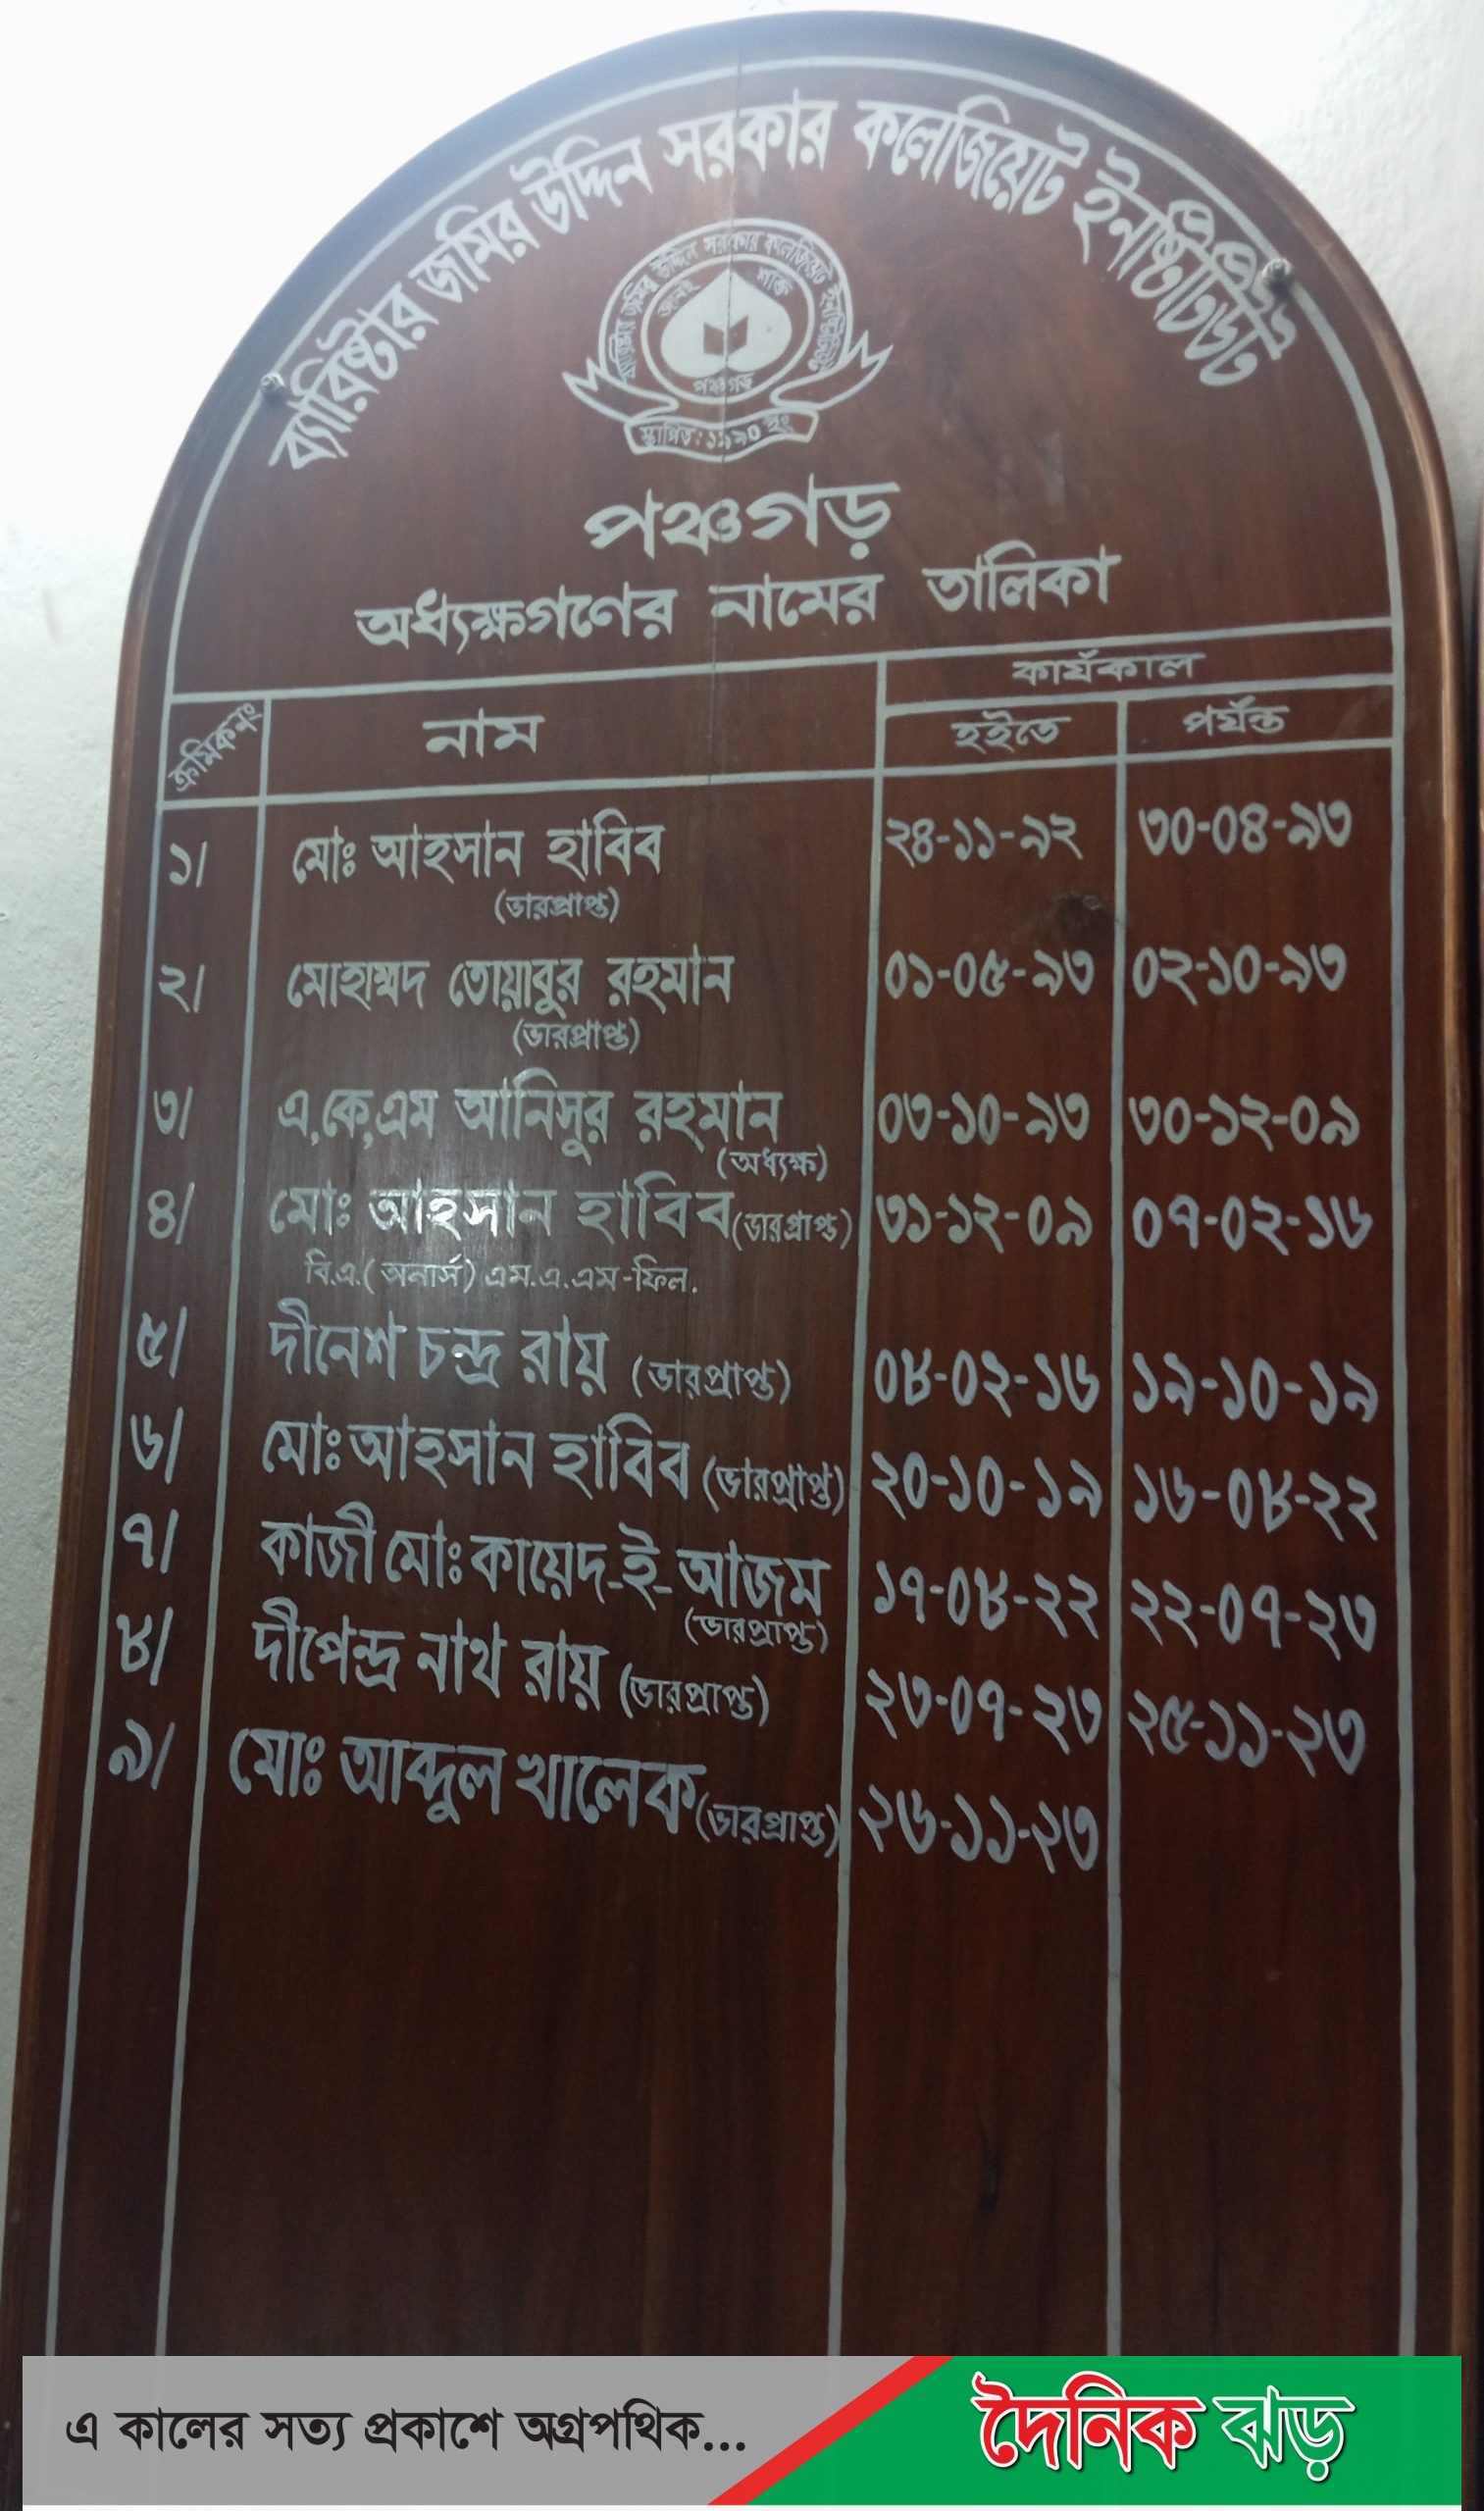 ব্যারিষ্টার জমির উদ্দিন সরকার কলেজিয়েট ইনষ্টিটিউট
ব্যারিষ্টার জমির উদ্দিন সরকার কলেজিয়েট ইনষ্টিটিউট
জ্ঞানই শক্তি
পঞ্চগড়
স্থাপিত: ১৯৯০ ইং
পঞ্চগড়
অধ্যক্ষগণের নামের তালিকা
ক্রমিকনং নাম কার্যকাল
হইতে পর্যন্ত
১/ মোঃ আহসান হাবিব ২৪-১১-৯২ ৩০-০৪-৯৩
(ভারপ্রাপ্ত)
২/ মোহাম্মদ তোয়াবুর রহমান ০১-০৫-৯৩ ০২-১০-৯৩
(ভারপ্রাপ্ত)
৩/ এ,কে,এম আনিসুর রহমান ০৩-১০-৯৩ ৩০-১২-০৯
(অধ্যক্ষ)
৪/ মোঃ আহসান হাবিব (ভারপ্রাপ্ত) ৩১-১২-০৯ ০৭-০২-১৬
বি.এ.(অনার্স) এম.এ.এম-ফিল.
৫/ দীনেশ চন্দ্র রায় (ভারপ্রাপ্ত) ০৮-০২-১৬ ১৯-১০-১৯
৬/ মোঃ আহসান হাবিব (ভারপ্রাপ্ত) ২০-১০-১৯ ১৬-০৮-২২
৭/ কাজী মোঃ কায়েদ-ই-আজম ১৭-০৮-২২ ২২-০৭-২৩
(ভারপ্রাপ্ত)
৮/ দীপেন্দ্র নাথ রায় (ভারপ্রাপ্ত) ২৩-০৭-২৩ ২৫-১১-২৩
৯/ মোঃ আব্দুল খালেক (ভারপ্রাপ্ত) ২৬-১১-২৩
এ কালের সত্য প্রকাশে অগ্রপথিক...
দৈনিক ঝড়